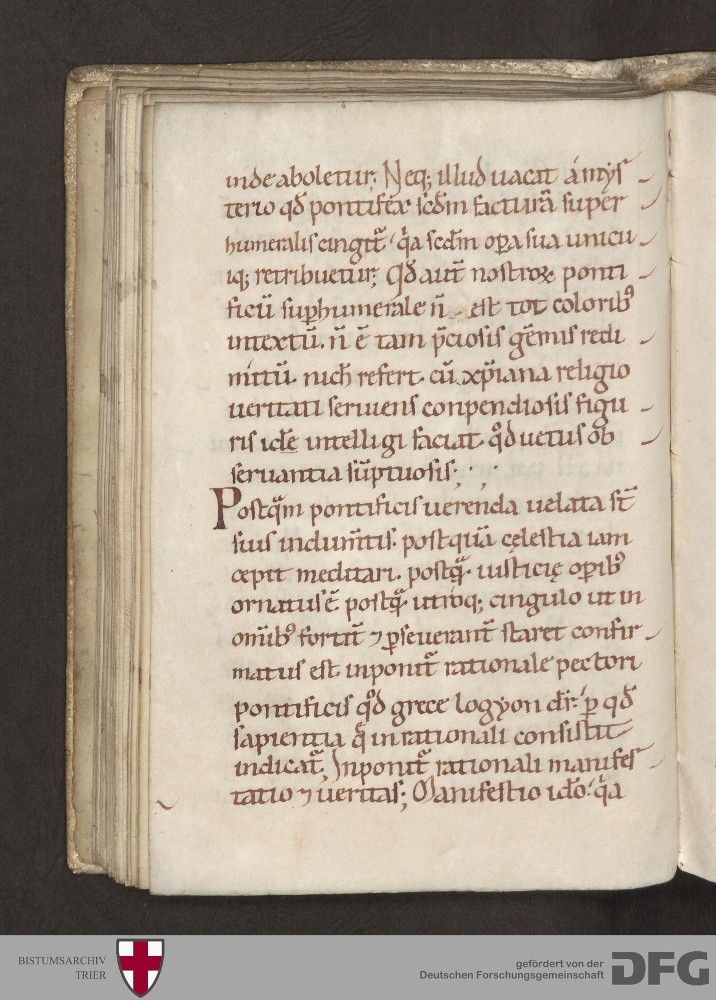 inde aboletur; Neq; illud uacat á mys
terio qđ pontifex scdm facturā super
humeralis cingit᷑ q̇a scdm opa sua unicu
iq; retribuetur; Qđ aut̄ nostroꝝ ponti
ficū suphumerale ñ est tot coloribꝰ
intextū. ñ ē tam p̄ciosis gēmis redi
mitū. nich refert. cū xp̄iana religio
ueritati seruiens conpendiosis figu
ris idē intelligi faciat. qđ uetus ob
seruantia sūptuosis;
Postq̄m pontificis uerenda uelata st̄
suis indumtis. postquā cęlestia iam
cepit meditari. postq̄. iusticię opibꝰ
ornatus ē postq̄. utroq; cingulo ut in
om̄ibꝰ fortit̄ ⁊ pseuerant̄ staret confir
matus est. inponit᷑ rationale pectori
pontificis qđ grece logyon dr̄. p qđ
sapientia q̄ in rationali consistit
indicat᷑. Inponit᷑ rationali manifes
tatio ⁊ ueritas; Manifestio idō. q̇a
BISTUMSARCHIV
TRIER
gefördert von der
Deutschen Forschungsgemeinschaft
DFG